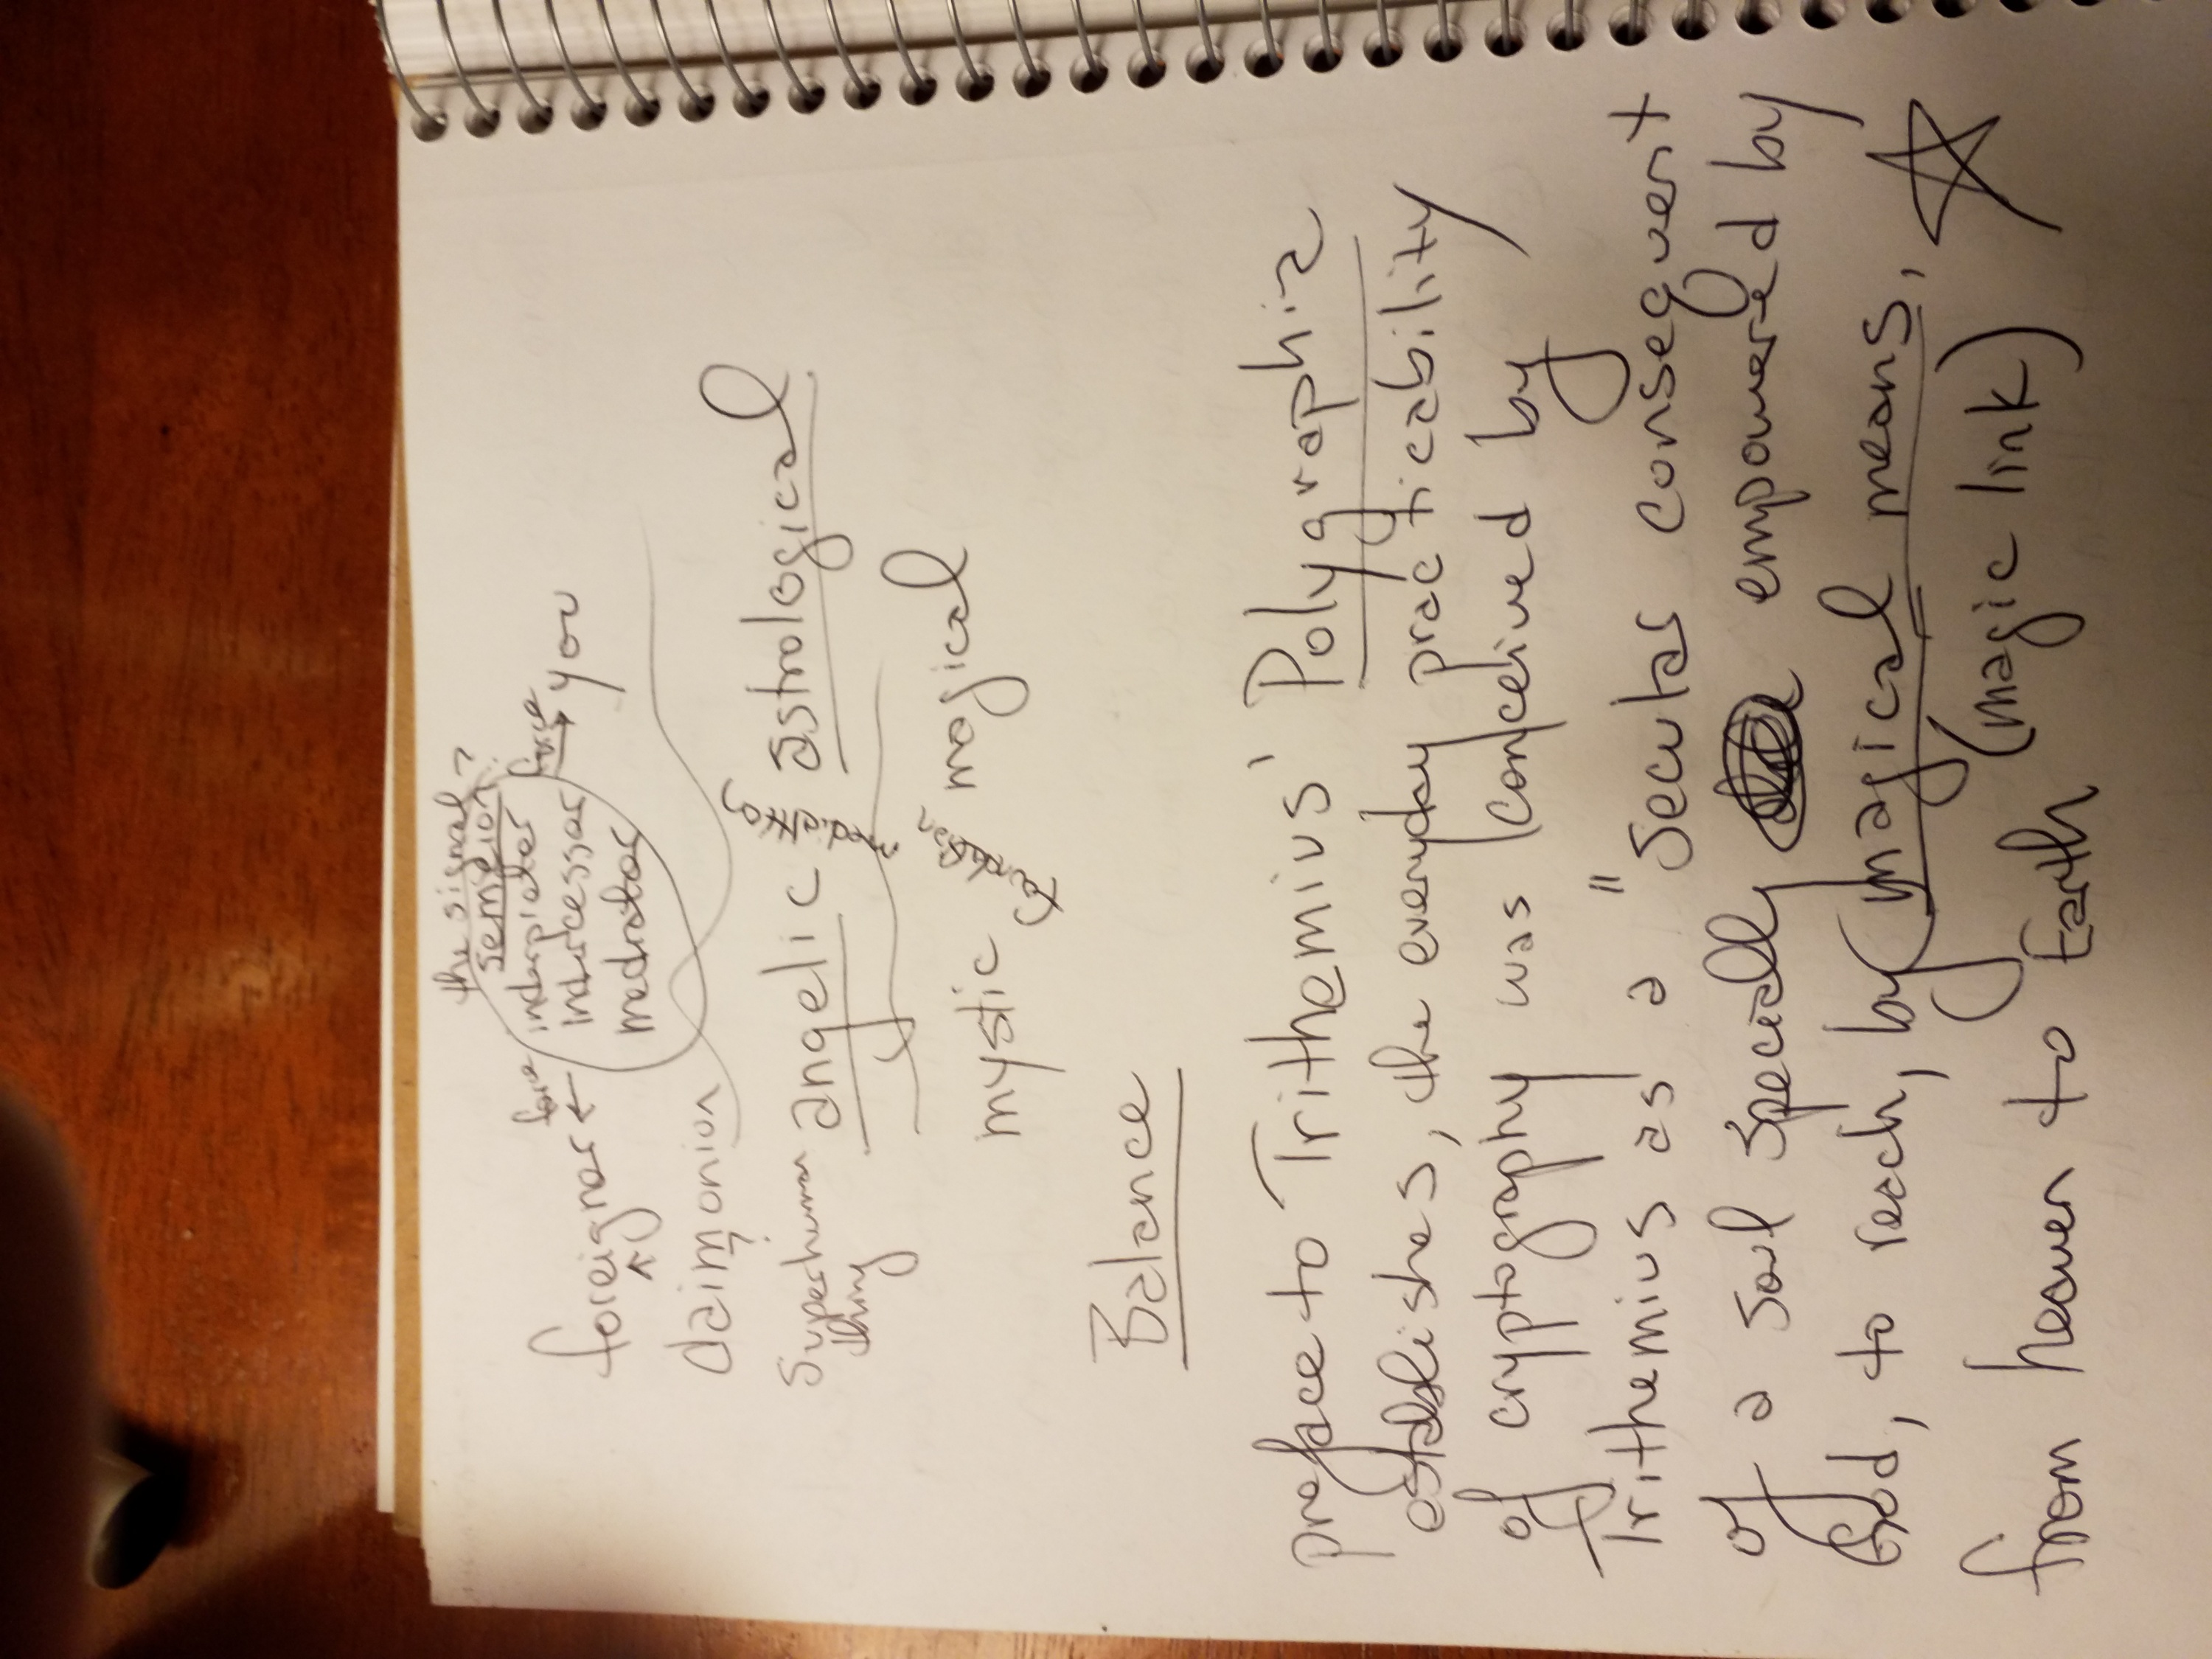 the signal?
semeion?
foreignor ← interpreter → you
intercessor
mediator
daimonion
superhuman angelic astrological
thing
mystic magical
Balance
preface to Trithemius' Polygraphia
establishes, the everyday practicability
of cryptography was conceived by
Trithemius as a "secular consequent
of a soul specially empowered by
God, to reach, by magical means,
from heaven to Earth (magic link)